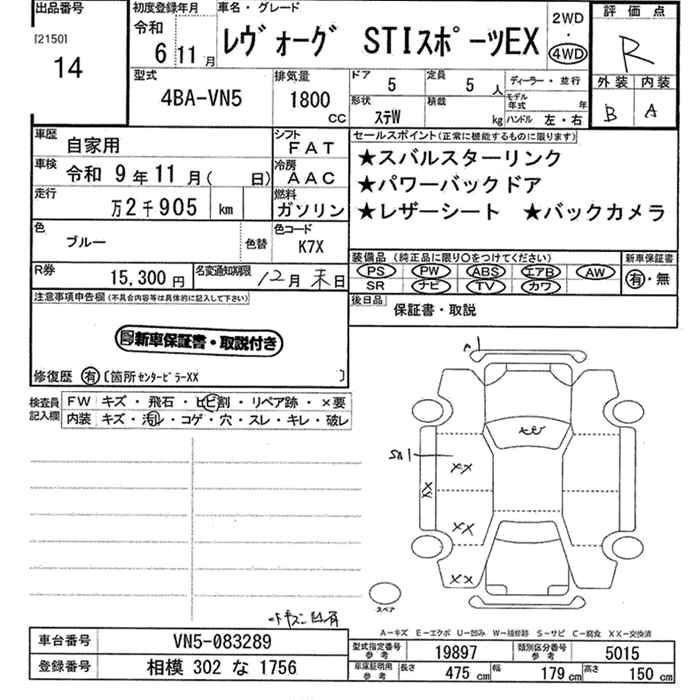 出品番号
[2150]
14
初度登録年月
令和
6年11月
車名・グレード
レヴォーグ STIスポーツEX
2WD
・
4WD
評価点
R
外装 内装
B A
型式
4BA-VN5
排気量
1800
cc
ドア 5 定員 5人
形状 ステW 積載 kg
ディーラー・並行
モデル年式 年
ハンドル 左・右
車歴 自家用
シフト FAT
車検 令和 9年11月( 日)
冷房 AAC
走行 万2千905 km
燃料 ガソリン
色 ブルー 色替
色コード K7X
R券 15,300円
名変通知期限 12月末日
セールスポイント(正常に機能するものに限ります)
★スバルスターリンク
★パワーバックドア
★レザーシート ★バックカメラ
装備品(純正品に限り〇をつけてください)
新車保証書
PS PW ABS エアB AW
SR ナビ TV カワ
有・無
後日品 保証書・取説
注意事項申告欄(不具合内容等は具体的に記入して下さい)
新車保証書・取説付き
修復歴 有 〔箇所 センターピラーXX 〕
検査員記入欄
FW キズ・飛石・ヒビ割・リペア跡・×要
内装 キズ・汚れ・コゲ・穴・スレ・キレ・破レ
ヒビ
XX
XX
XX
XX
スペア
A－キズ E－エクボ U－凹み W－補修跡 S－サビ C－腐食 XX－交換済
車台番号 VN5-083289
登録番号 相模 302 な 1756
型式指定番号 参考 19897
類別区分番号 参考 5015
車庫証明用 参考 長さ 475 cm 幅 179 cm 高さ 150 cm